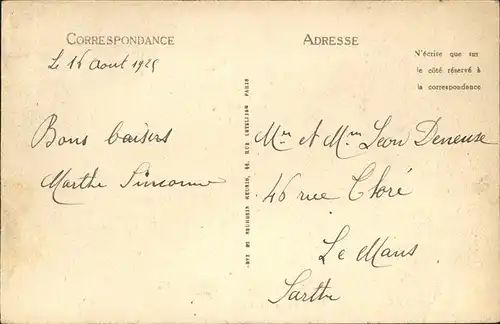 CORRESPONDANCE
Le 16 Août 1925
Bons baisers
Marthe
ADRESSE
N'écrire que sur
le côté réservé à
la correspondance
Mr et Mme Leon Deneuse
46 rue Thoré
Le Mans
Sarthe
PARIS